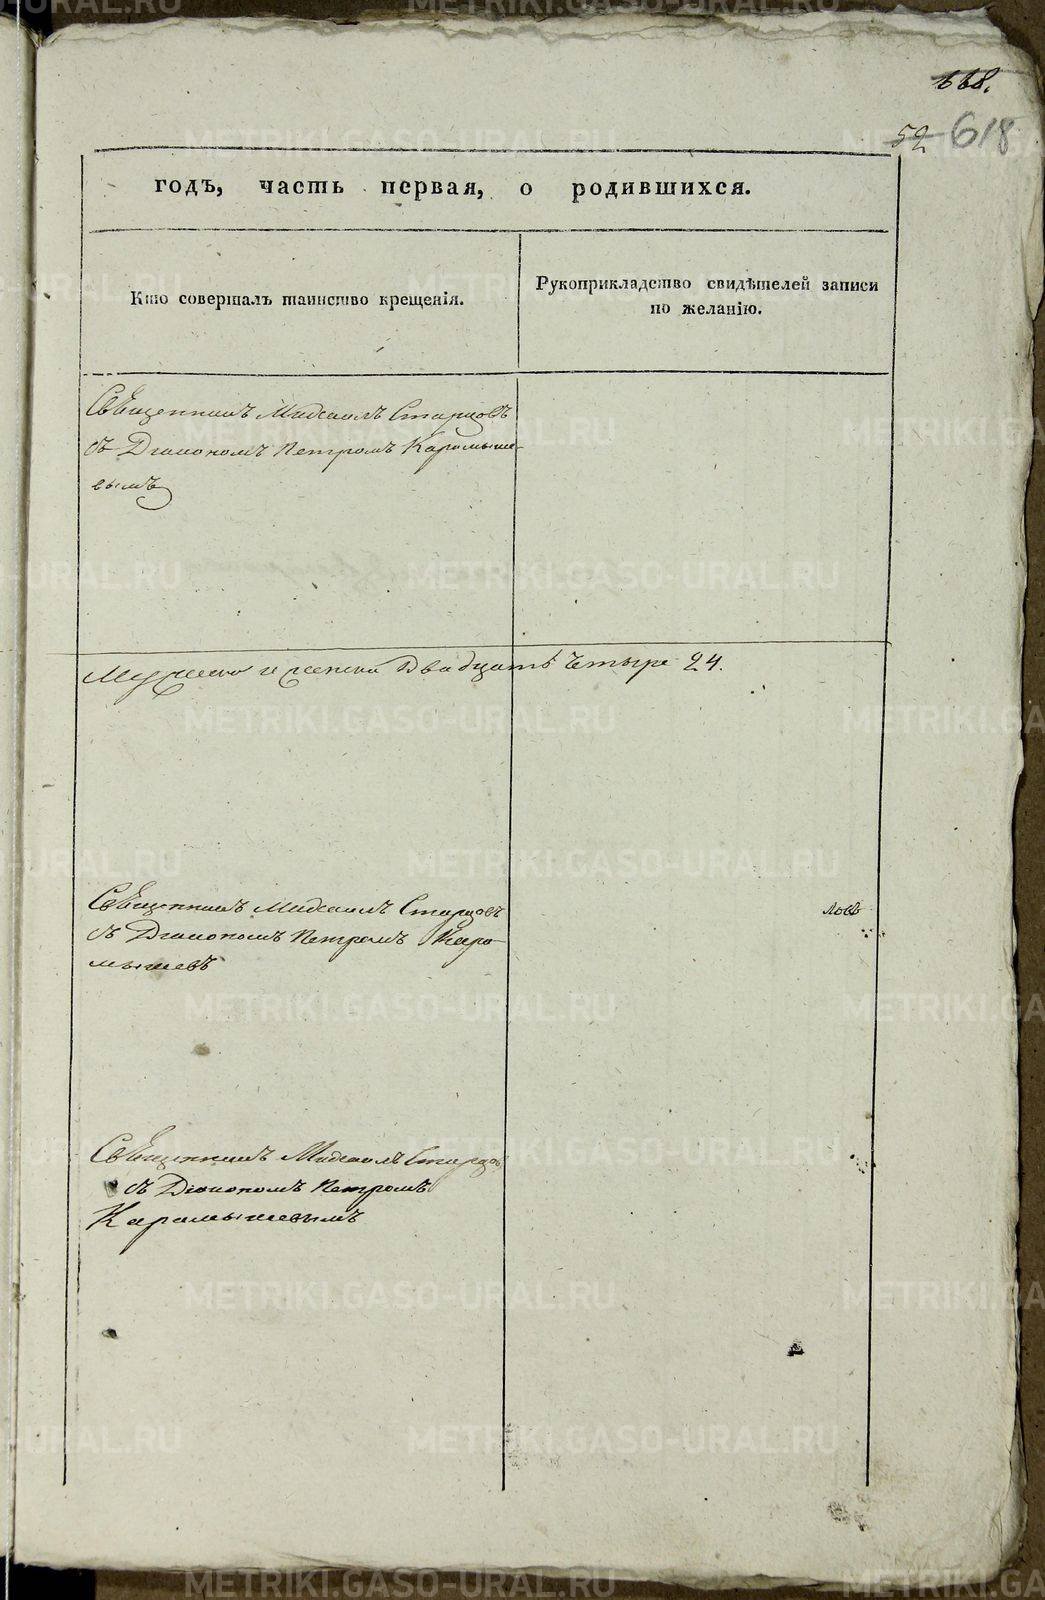 668.
52 618
годъ, часть первая, о родившихся.
Кто совершалъ таинство крещенія.
Рукоприкладство свидѣтелей записи
по желанію.
Священникъ Михаилъ Старцовъ
съ Діакономъ Петромъ Карамыше-
вымъ
Мужеска и женска Двадцать четыре 24.
Священникъ Михаилъ Старцовъ
съ Діакономъ Петромъ Кара-
мышевъ
Священникъ Михаилъ Старцовъ
съ Діакономъ Петромъ
Карамышевымъ
METRIKI.GASO-URAL.RU